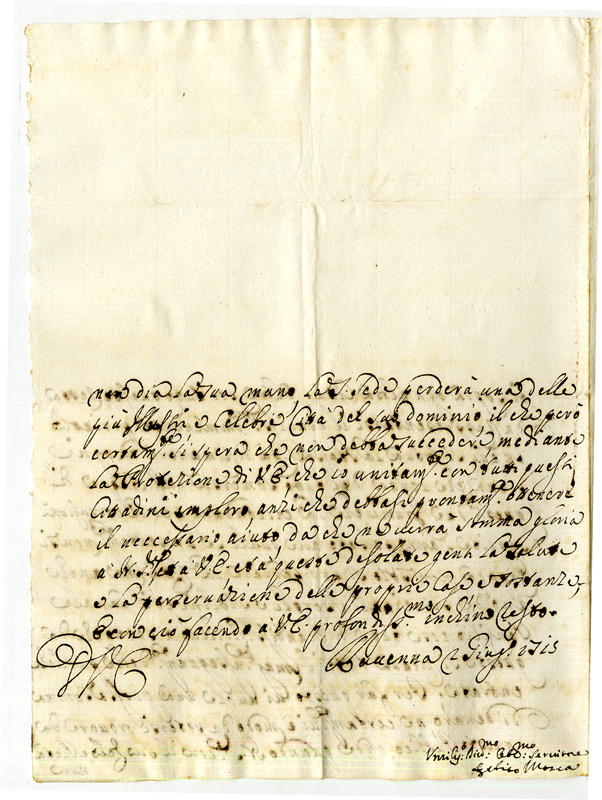 non dia la sua mano la S. Sede perderà una delle
più Illustri e Celebri Città del suo dominio il che però
certam.te si spera che non debba succedere, mediante
la Protezione di V.E. che io unitam.te con tutti questi
Cittadini imploro anzi che debbasi prontam.te ottenere
il neccessario aiuto da che ne verrà somma gloria
a V.E. et a queste desolate genti la salute
e la perservazione delle proprie Case e sostanze,
E con ciò facendo a V.E. profondiss.mo inchino resto.
Ravenna 2 1715
VE
Umiliss.mo Servitore
Mosca